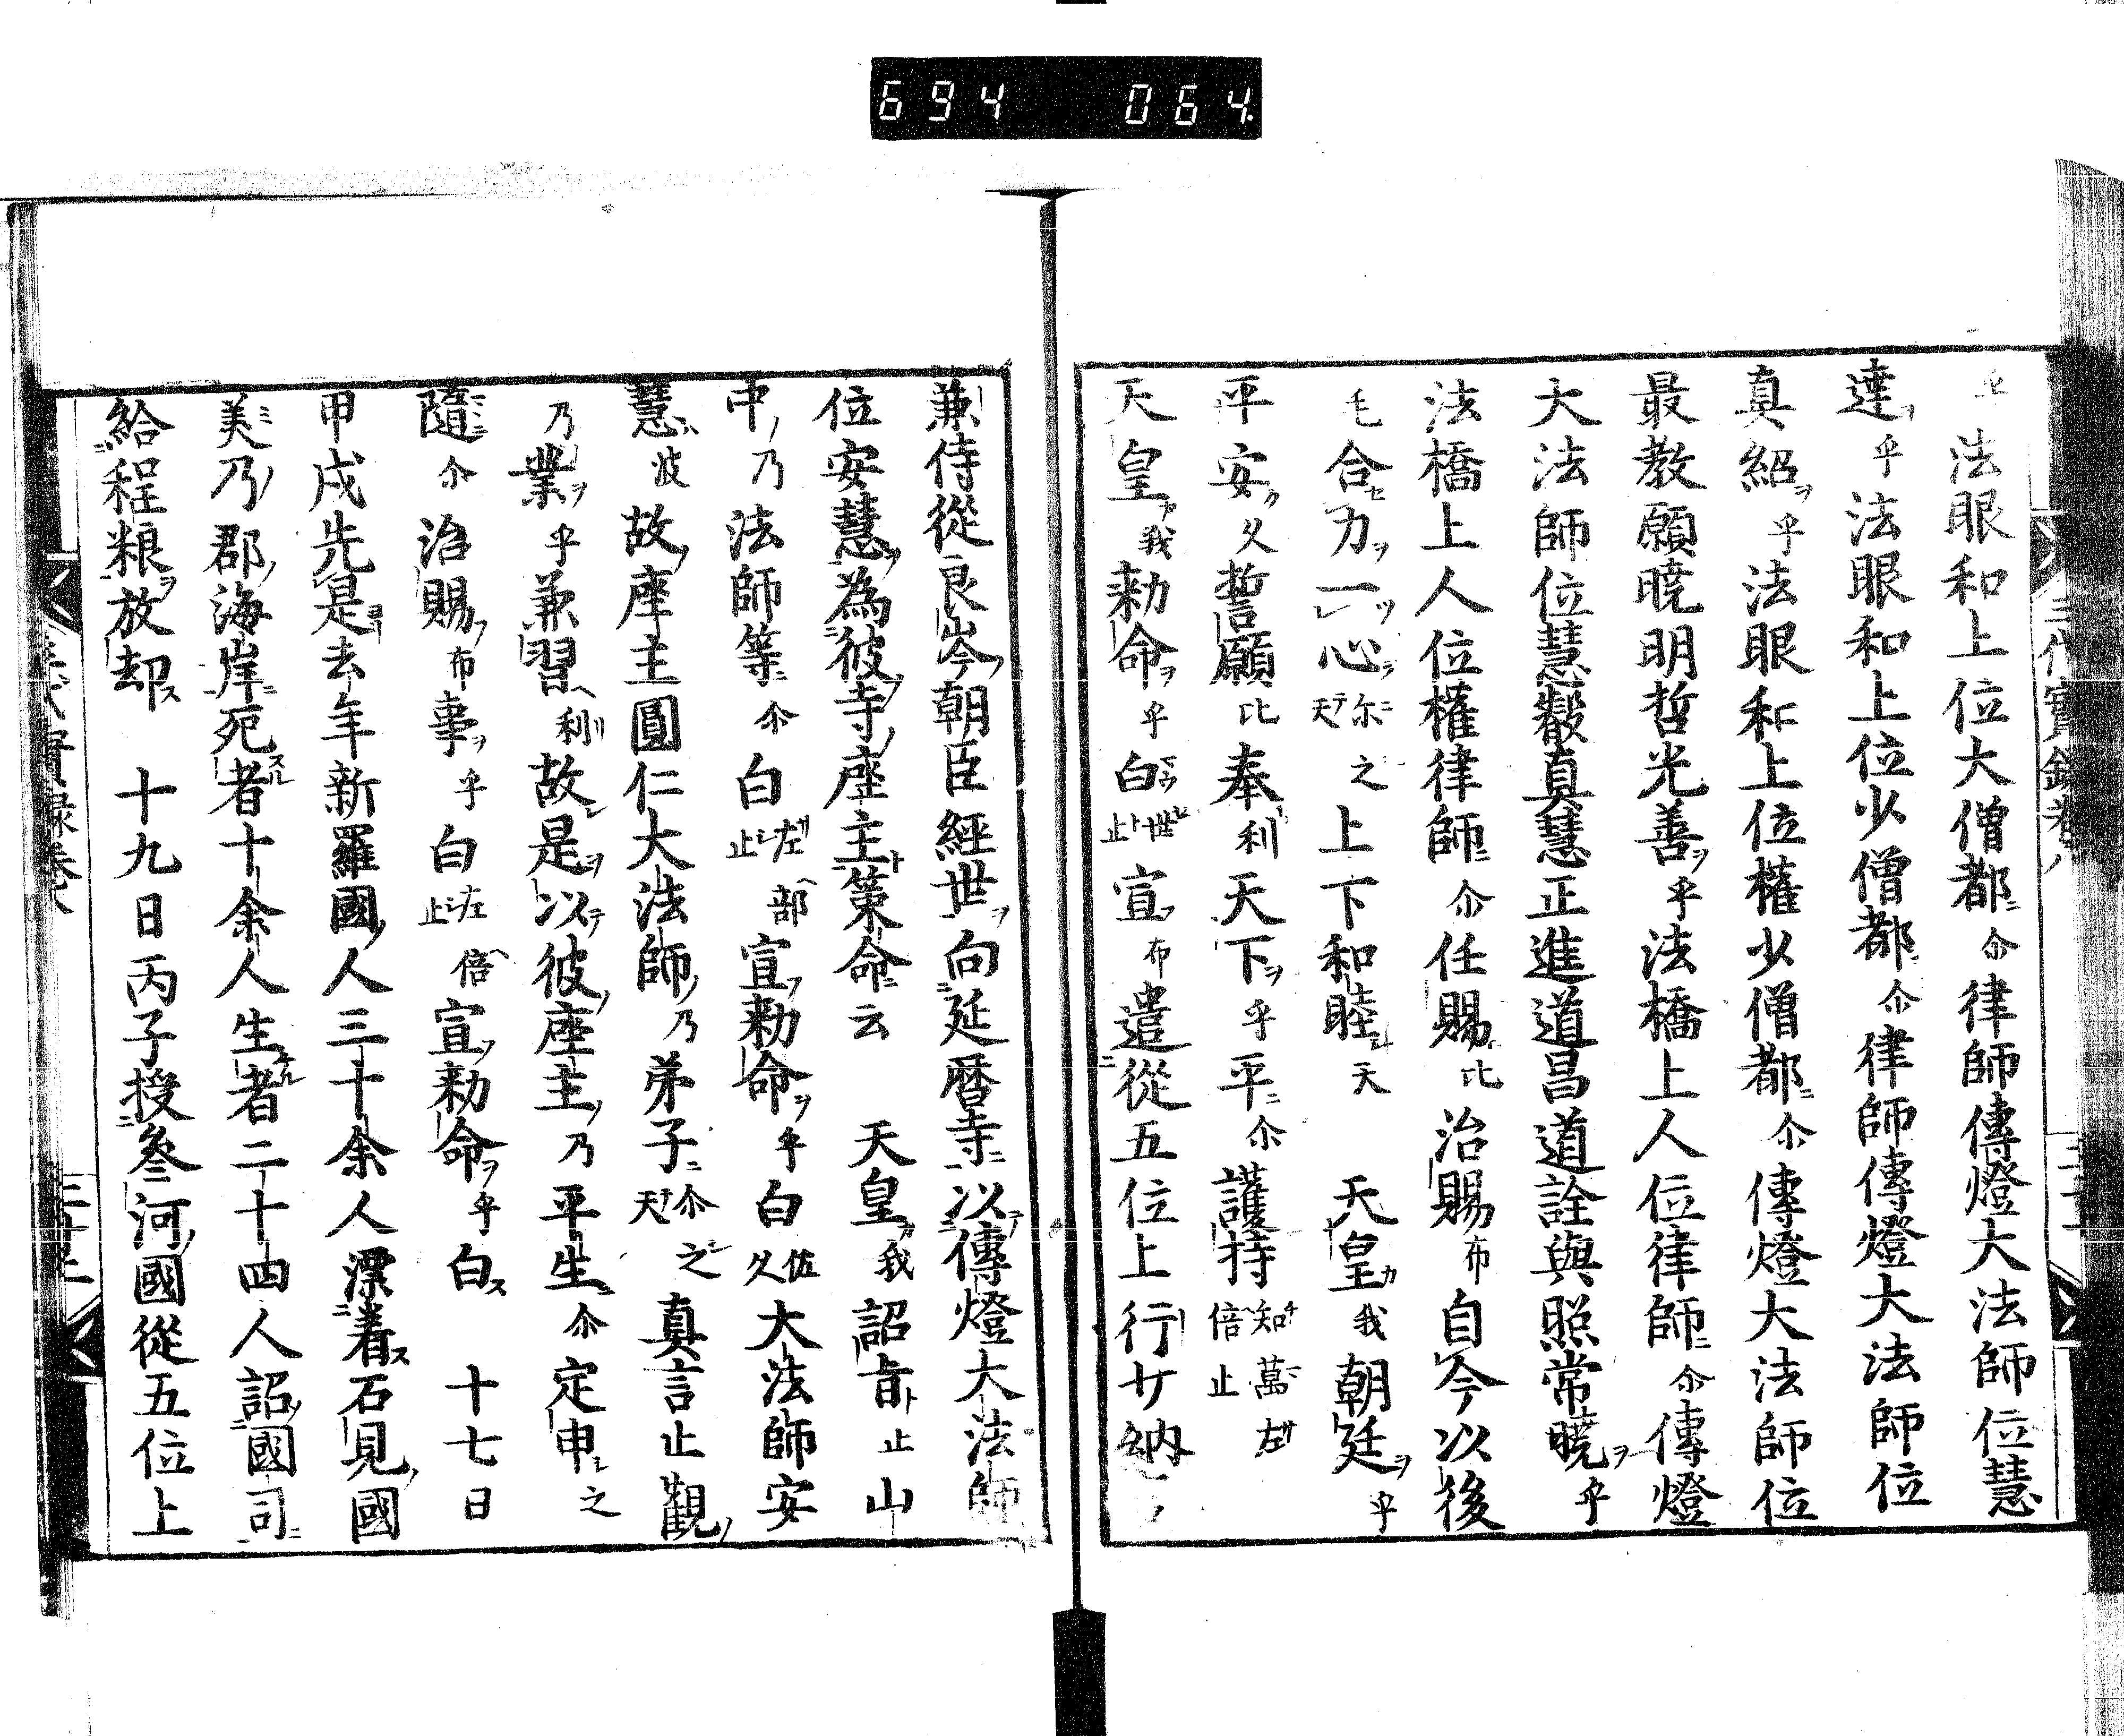 694 064
乎法眼和上位大僧都尒律師傳燈大法師位慧
達乎法眼和上位少僧都尒律師傳燈大法師位
真紹乎法眼和上位權少僧都尒傳燈大法師位
最教願曉明哲光善乎法橋上人位律師尒傳燈
大法師位慧叡真慧正進道昌道詮與照常曉乎
法橋上人位權律師尒任賜比治賜布自今以後
毛合力一心尓天之上下和睦天 天皇我朝廷乎
平安久誓願比奉利天下乎平尒護持知倍萬止左
天皇我勅命乎白世止宣布遣從五位上行少納
兼侍從良岑朝臣經世向延曆寺以傳燈大法師
位安慧為彼寺座主策命云 天皇我詔旨止山
中乃法師等尒白左止部宣勅命乎白佐久大法師安
慧波故座主圓仁大法師乃弟子尒天之真言止觀
乃業乎兼習利故是以彼座主乃平生尒定申之
隨尒治賜布事乎白左止倍宣勅命乎白 十七日
甲戌先是去年新羅國人三十余人漂着石見國
美乃郡海岸死者十余人生者二十四人詔國司
給程粮放却 十九日丙子授叅河國從五位上